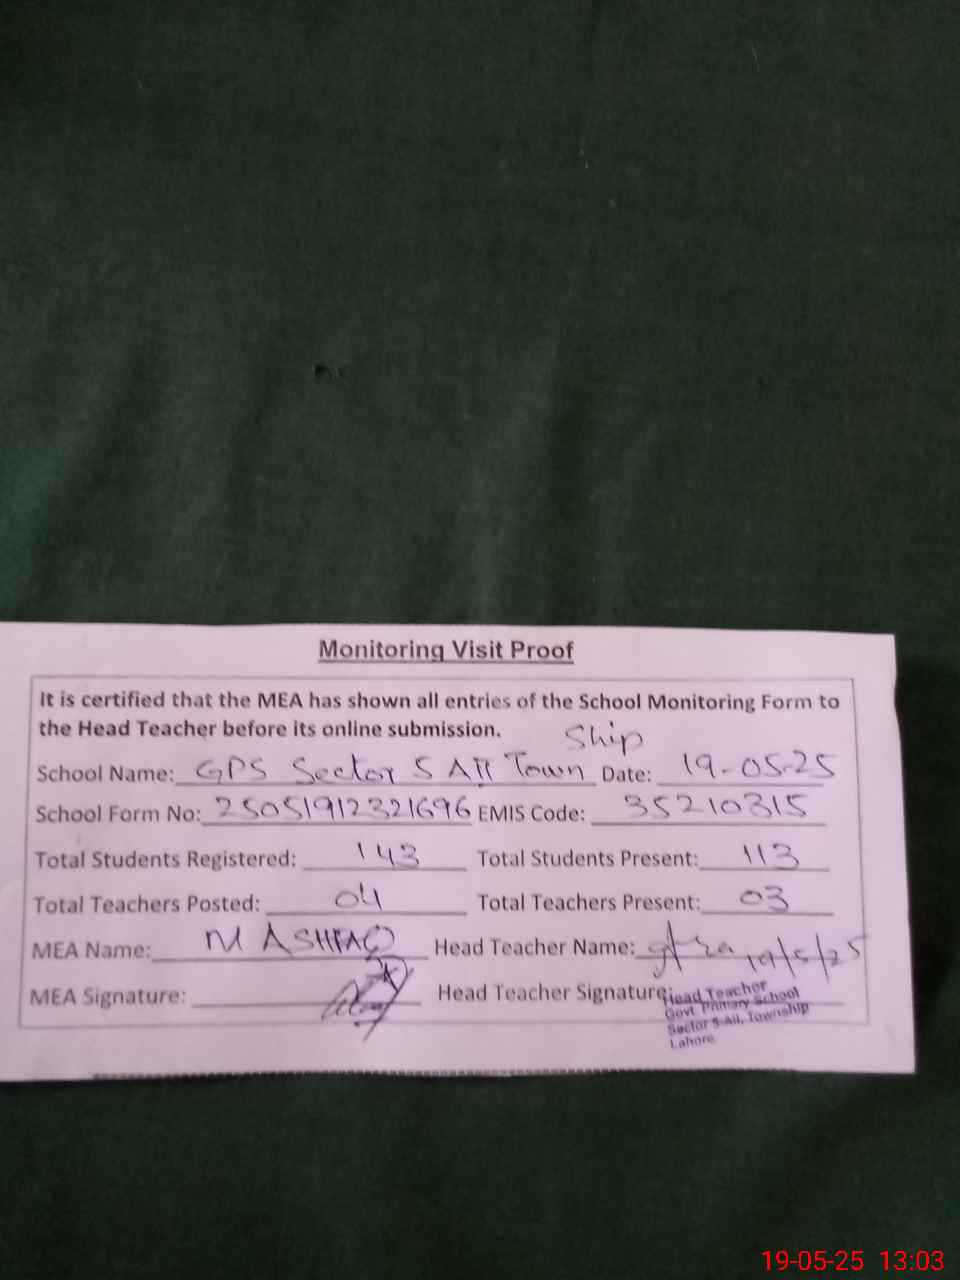 Monitoring Visit Proof
It is certified that the MEA has shown all entries of the School Monitoring Form to
the Head Teacher before its online submission.
Ship
School Name: GPS Sector 5 AII Town Date: 19-05-25
School Form No: 25051912321696 EMIS Code: 35210315
Total Students Registered: 143 Total Students Present: 113
Total Teachers Posted: 04 Total Teachers Present: 03
MEA Name: M ASHFAQ Head Teacher Name: 19/5/25
MEA Signature: Head Teacher Signature:
Head Teacher
Govt. Primary School
Sector 5-AII, Township
Lahore
19-05-25 13:03